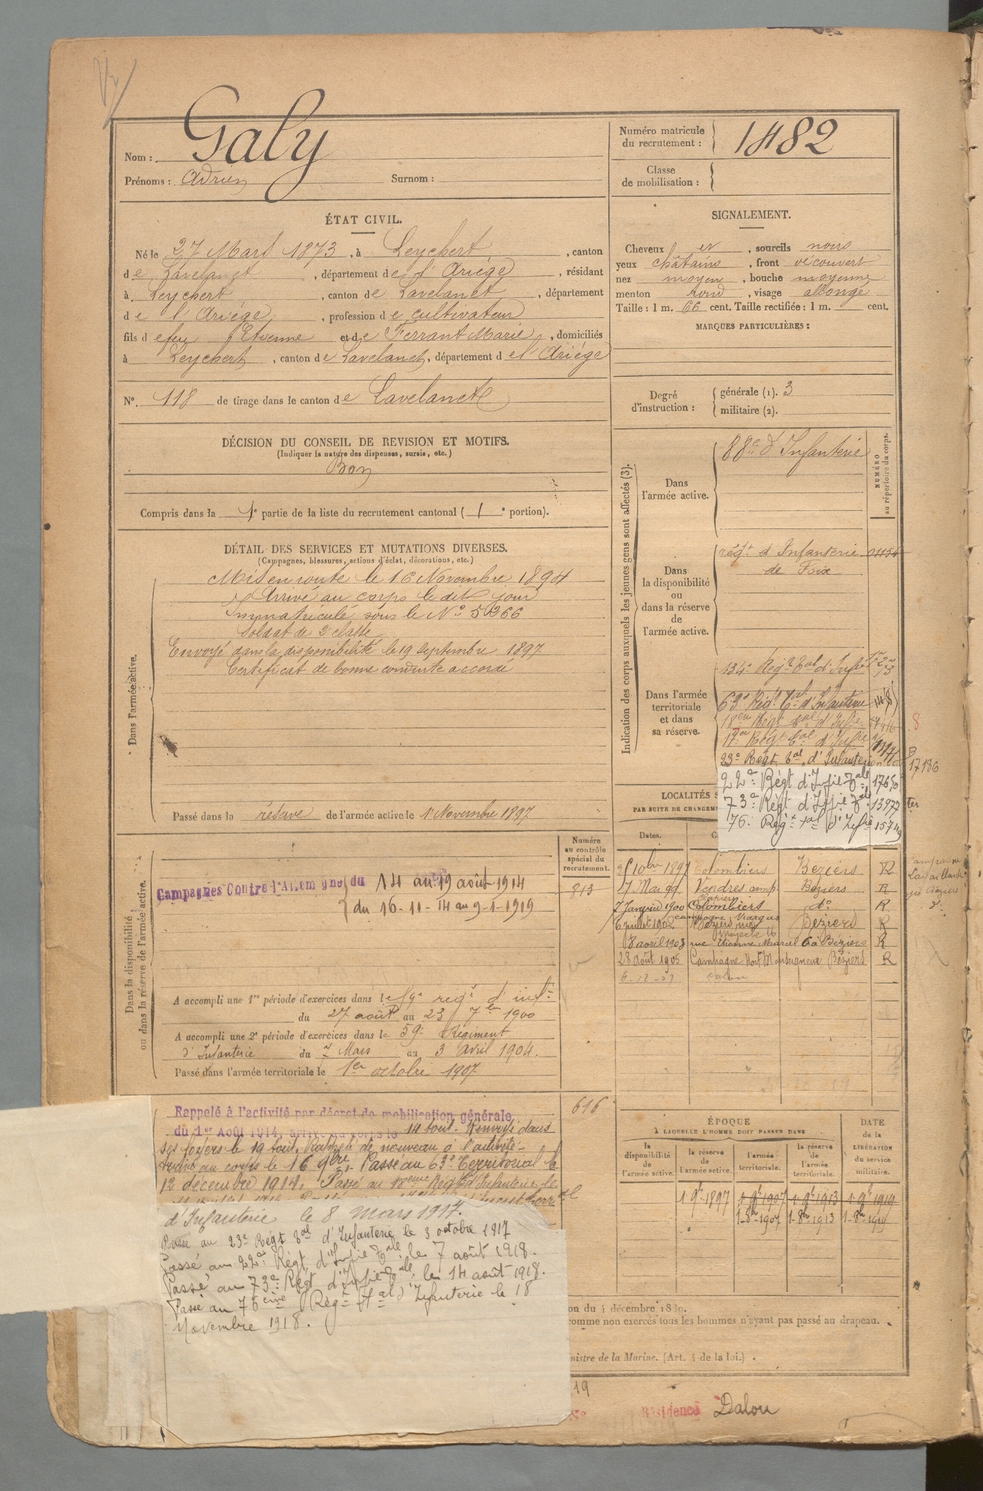 Nom : Galy
Prénoms : Adrien Surnom :
Numéro matricule du recrutement : 1482
Classe de mobilisation :
ÉTAT CIVIL.
Né le 27 Mars 1873, à Leychert, canton
de Lavelanet, département de l'Ariège, résidant
à Leychert, canton de Lavelanet, département
de l'Ariège, profession de cultivateur
fils de feu Etienne et de Ferrant Marie, domiciliés
à Leychert, canton de Lavelanet, département de l'Ariège
N° 118 de tirage dans le canton de Lavelanet
SIGNALEMENT.
Cheveux et, sourcils noirs
yeux châtains, front découvert
nez moyen, bouche moyenne
menton rond, visage allongé
Taille : 1 m. 66 cent. Taille rectifiée : 1 m. cent.
MARQUES PARTICULIÈRES :
Degré d'instruction : générale (1). 3
militaire (2).
DÉCISION DU CONSEIL DE REVISION ET MOTIFS.
(Indiquer la nature des dispenses, sursis, etc.)
Bon
Compris dans la 1e partie de la liste du recrutement cantonal (1e portion).
DÉTAIL DES SERVICES ET MUTATIONS DIVERSES.
(Campagnes, blessures, actions d'éclat, décorations, etc.)
Dans l'armée active.
Mis en route le 16 Novembre 1894
Arrivé au corps le dit jour
Immatriculé sous le N°
Soldat de 2e classe
Envoyé dans la disponibilité le 19 septembre 1897
Certificat de bonne conduite accordé
Passé dans la réserve de l'armée active le 1er Novembre 1897
Indication des corps auxquels les jeunes gens sont affectés (3).
NUMÉRO au répertoire du corps.
Dans l'armée active. 88e d'Infanterie
Dans la disponibilité ou dans la réserve de l'armée active.
régt d'Infanterie
de Foix
Dans l'armée territoriale et dans sa réserve.
134e Régt tal d'Infie
63e Régt Tal d'Infanterie
17e Régt tal d'Infie
23e Régt tal d'Infanterie
17186
22e Régt d'Infie Tale
73e Régt d'Infie Tale
76e Régt tal d'Infie
LOCALITÉS
PAR SUITE DE CHANGEM
Dates.
Colombiers Béziers R
7 Mai 99 Vendres Béziers R
7 Janvier 1900 Colombiers do R
6 juillet 1902 Béziers R
18 avril 1903 rue Etienne Marcel 6 à Béziers R
28 août 1905 Campagne Béziers R
Dans la disponibilité ou dans la réserve de l'armée active.
Numéro au contrôle spécial du recrutement.
813
Campagnes Contre l'Allemagne du 14 au 19 août 1914
du 16-11-14 au 9-1-1919
A accompli une 1re période d'exercices dans le 59e régt d'infie
du 27 août au 23 7bre 1900
A accompli une 2e période d'exercices dans le 59e Régiment
d'Infanterie du 7 Mars au 3 Avril 1904.
Passé dans l'armée territoriale le 1er octobre 1907
616
Rappelé à l'activité par décret de mobilisation générale
du 1er Août 1914, 14 août. Renvoyé dans
ses foyers le 19 août. Rappelé de nouveau à l'activité
Arrivé au corps le 16 9bre. Passé au 63e Territorial le
12 décembre 1914. Passé au Régt d'Infanterie le
d'Infanterie le 8 mars 1917.
Passé au 23e Régt Tal d'Infanterie le 3 octobre 1917
Passé au 22e Régt d'Infie Tale le 7 août 1918.
Passé au 73e Régt d'Infie Tale le 14 août 1918.
Passé au 76ème Régt Tal d'Infanterie le 18
Novembre 1918.
ÉPOQUE
À LAQUELLE L'HOMME DOIT PASSER DANS
la disponibilité de l'armée active.
la réserve de l'armée active.
l'armée territoriale.
la réserve de l'armée territoriale.
DATE de la LIBÉRATION du service militaire.
1 9e 1897 1 9e 1907 1 9e 1913 1 9e 1919
1-8e-1907 1-8e 1913 1-8e-1919
on du 4 décembre 18
comme non exercés tous les hommes n'ayant pas passé au drapeau.
nistre de la Marine. (Art. 4 de la loi.)
19
Résidence Dalou